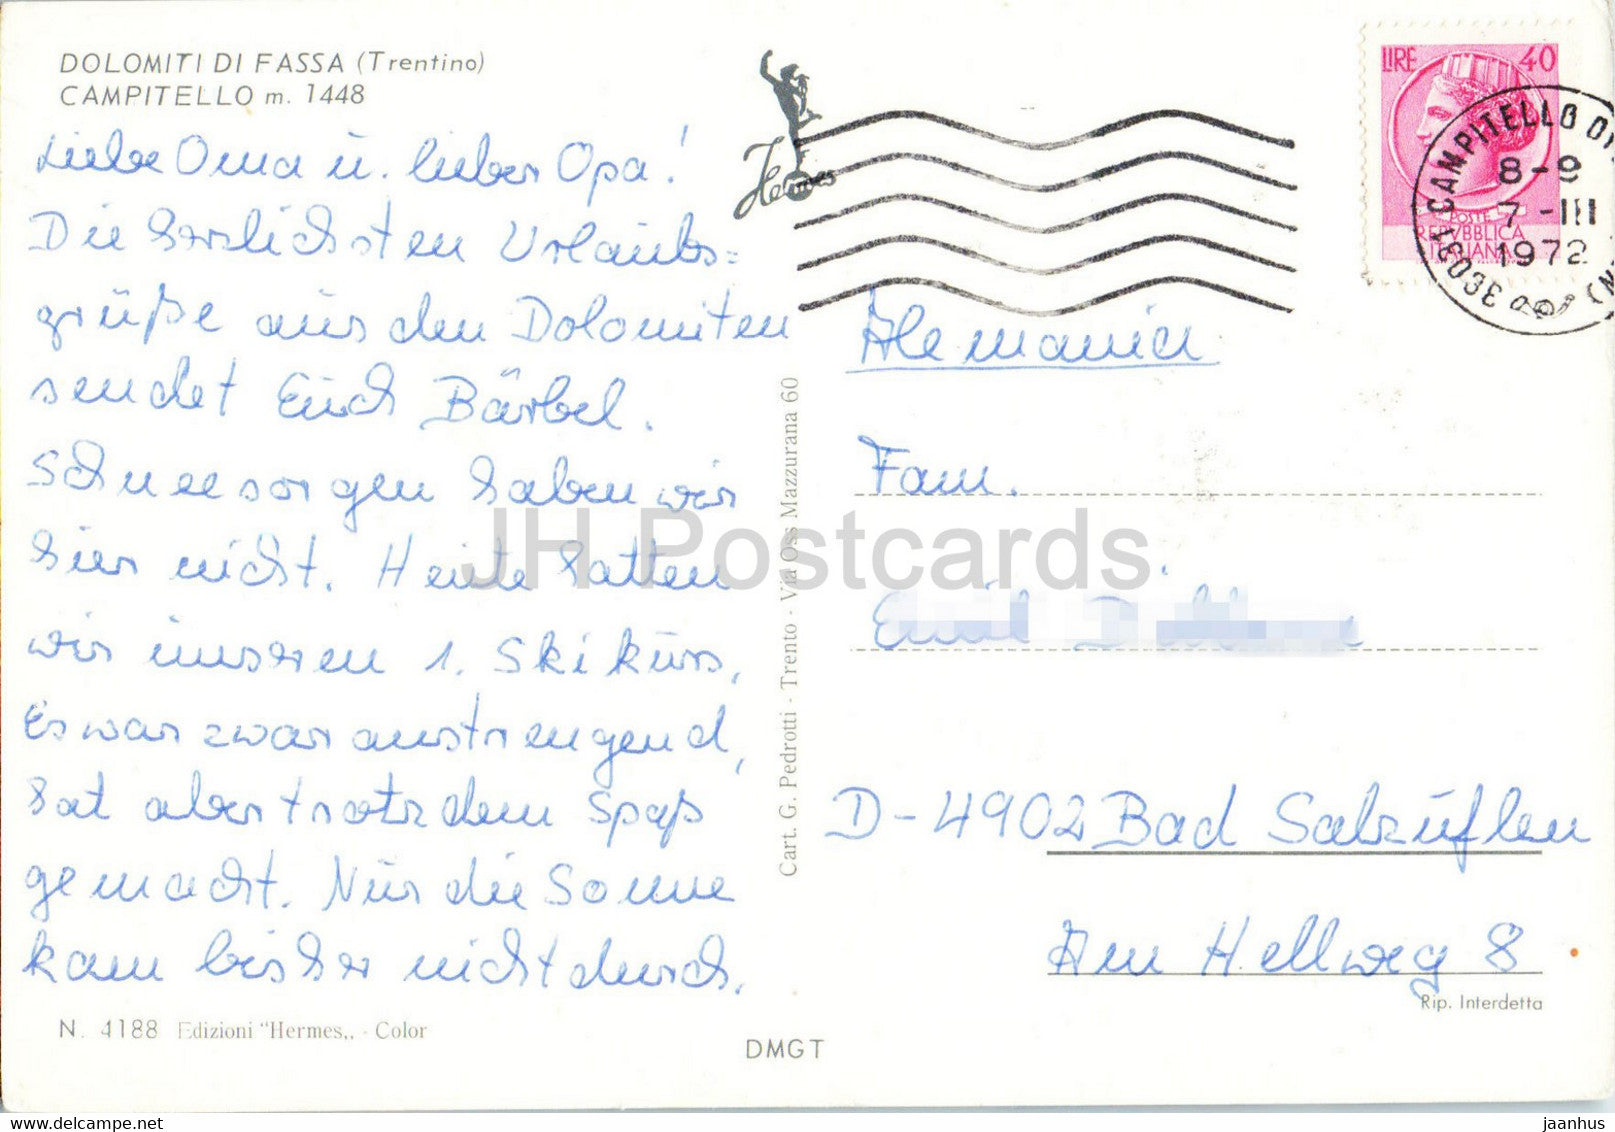 DOLOMITI DI FASSA (Trentino)
CAMPITELLO m. 1448
Liebe Oma u. lieber Opa!
Die herzlichsten Urlaubs=
grüße aus den Dolomiten
sendet Euch Bärbel.
Schneesorgen haben wir
hier nicht. Heute hatten
wir unseren 1. Skikurs,
Es war zwar anstrengend,
hat aber trotzdem Spaß
gemacht. Nur die Sonne
kam bisher nicht durch.
N. 4188 Edizioni "Hermes,, - Color
DMGT
Hermes
Cart. G. Pedrotti - Trento - Via Oss Mazzurana 60
LIRE 40
POSTE
REPVBBLICA
ITALIANA
38031 CAMPITELLO DI
8-9
7-III
1972
(TN)
Alemania
Fam.
Emil
D-4902 Bad Salzuflen
Am Hellweg 8
Rip. Interdetta
JH Postcards
jaanhus